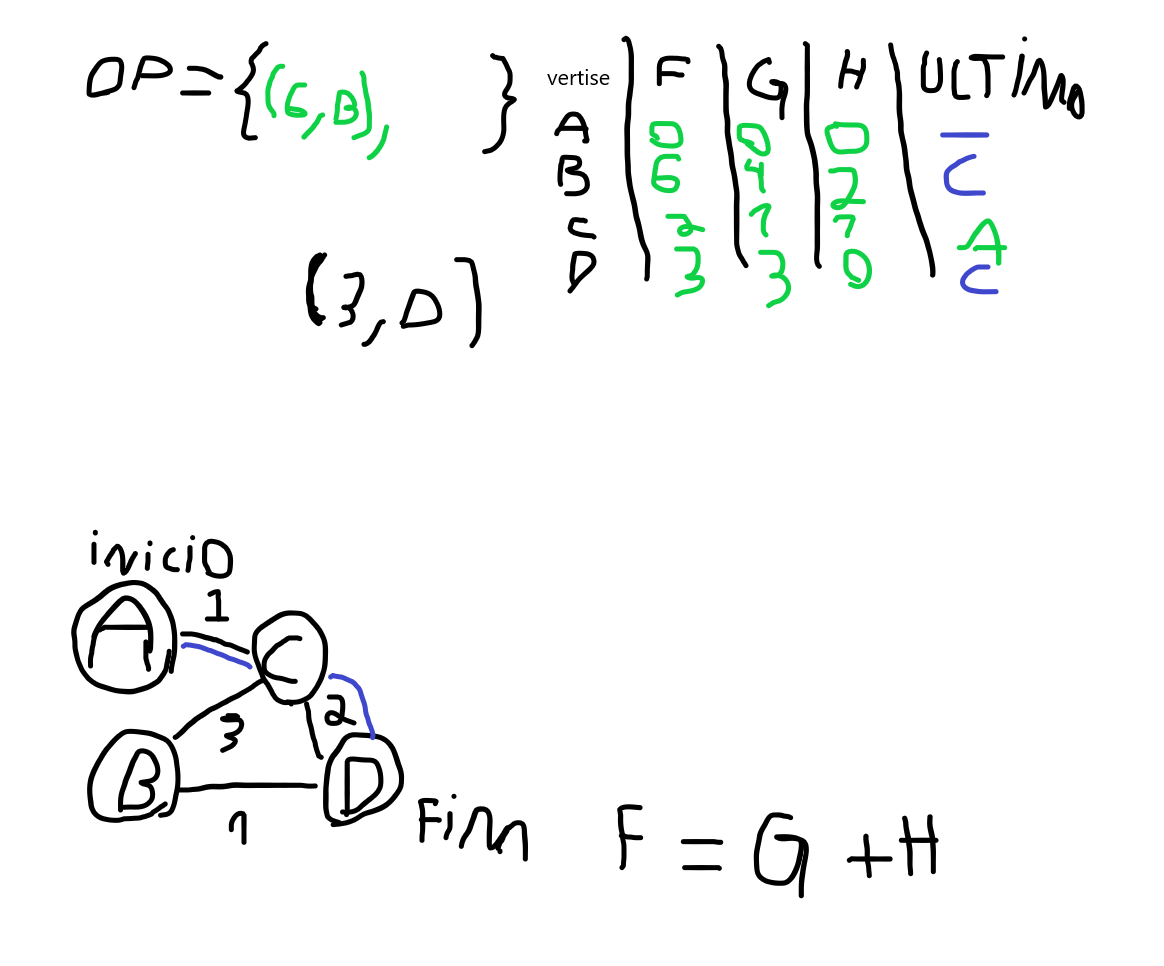 OP = {(6,B), }
vertise F G H ULTIMO
A 0 0 0 —
B 6 4 2 C
C 2 1 1 A
D 3 3 0 C
(3,D)
iniciO
A 1 C
3 2
B 1 D
Fim
F = G + H